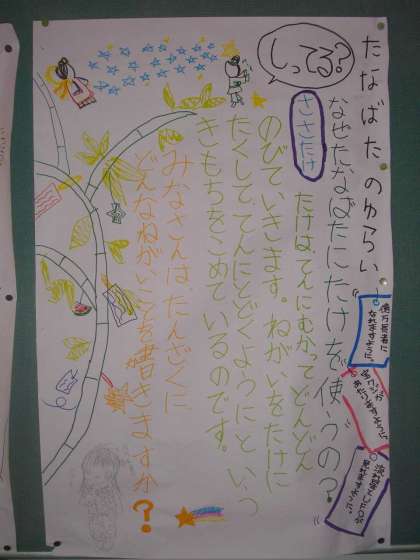 たなばたのゆらい
しってる?
なぜたなばたにたけを使うの?
ささたけ
たけは、てんにむかってどんどん
のびていきます。ねがいをたけに
たくして、てんにとどくようにという
きもちをこめているのです。
みなさんは、たんざくに
どんなねがいごとを書きますか?
億万長者に
なれますように。
宝クジが
あたりますように